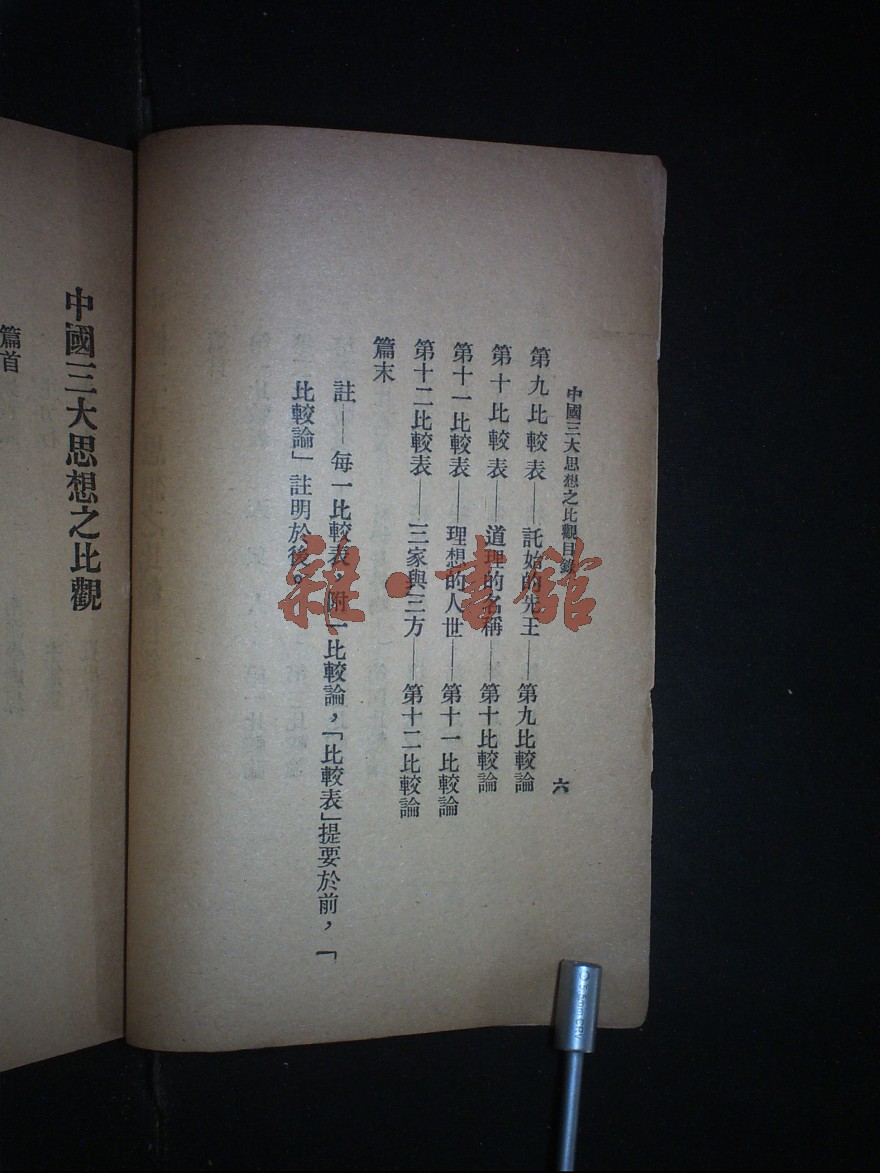 中國三大思想之比觀目錄
六
第九比較表——託始的先王——第九比較論
第十比較表——道理的名稱——第十比較論
第十一比較表——理想的人世——第十一比較論
第十二比較表——三家與三方——第十二比較論
篇末
註——每一比較表，附一比較論，「比較表」提要於前，「
比較論」註明於後。
中國三大思想之比觀
篇首
雜·書館